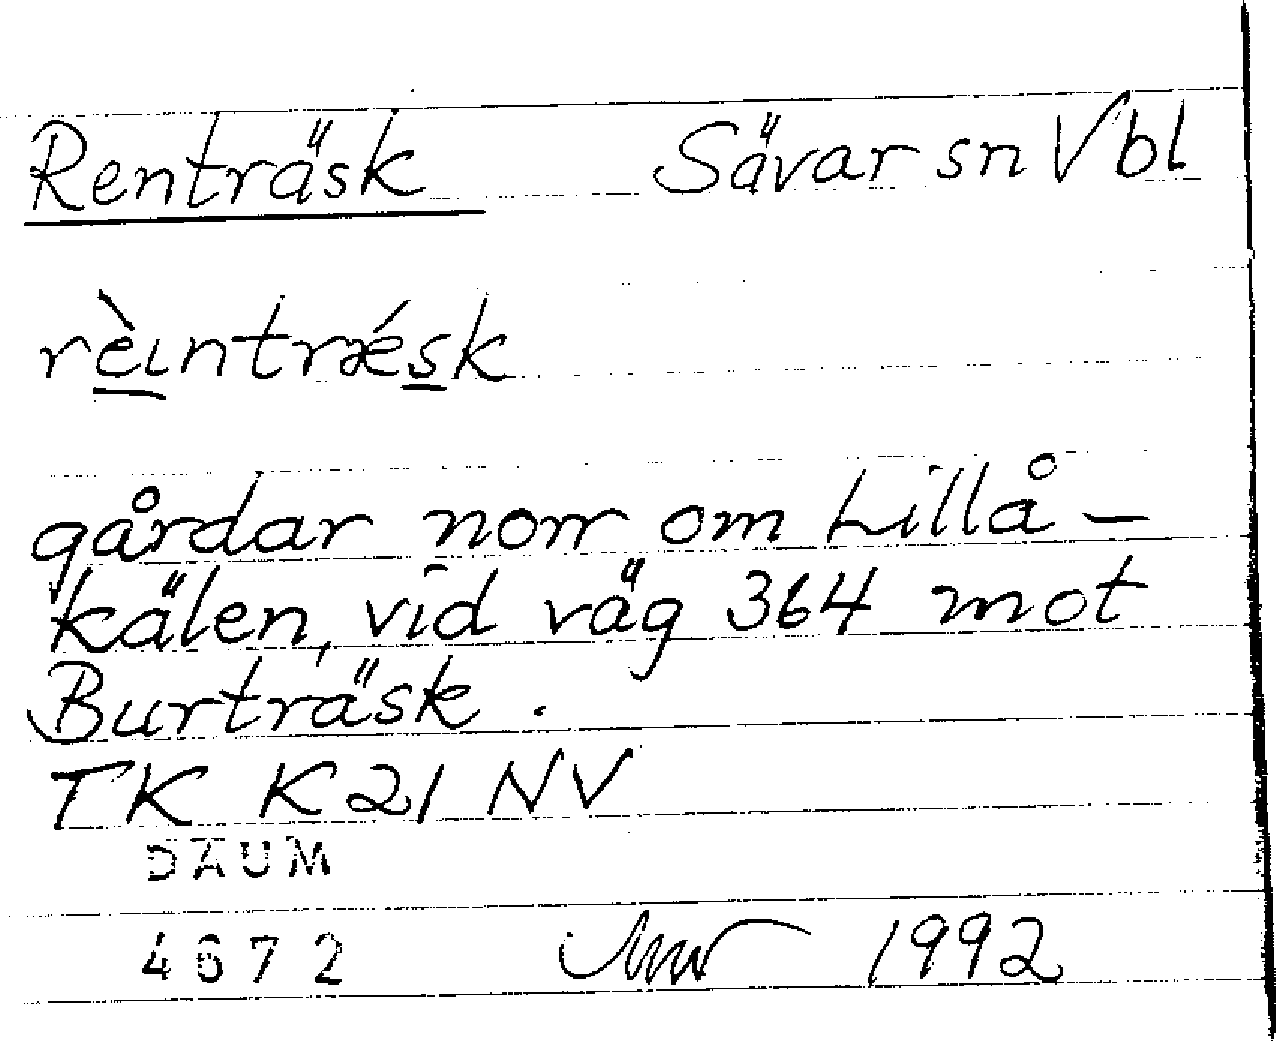 Renträsk Sävar sn Vbl
rèıntrǽsk
gårdar norr om Lillå-
kälen, vid väg 364 mot
Burträsk.
TK K21 NV
DAUM
4672 1992